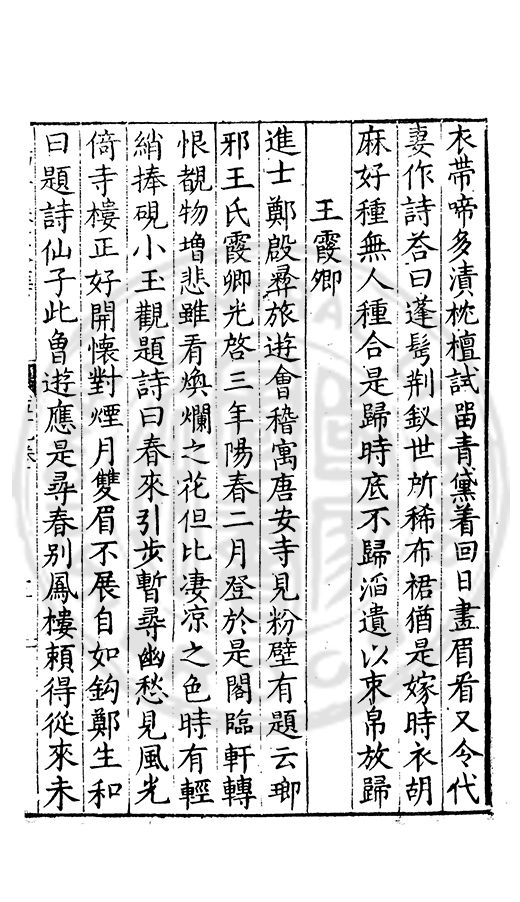 衣帶啼多漬枕檀試畱青黛着回日畫眉看又令代
妻作詩荅曰蓬髩荆釵世所稀布裙猶是嫁時衣胡
麻好種無人種合是歸時底不歸滔遺以束帛放歸
王霞卿
進士鄭殷彞旅遊會稽寓唐安寺見粉壁有題云瑯
邪王氏霞卿光啓三年陽春二月登於是閣臨軒轉
恨覩物增悲雖看煥爛之花但比凄凉之色時有輕
綃捧硯小玉觀題詩曰春來引步暫尋幽愁見風光
倚寺樓正好開懷對煙月雙眉不展自如鈎鄭生和
曰題詩仙子此曾遊應是尋春别鳳樓賴得從來未